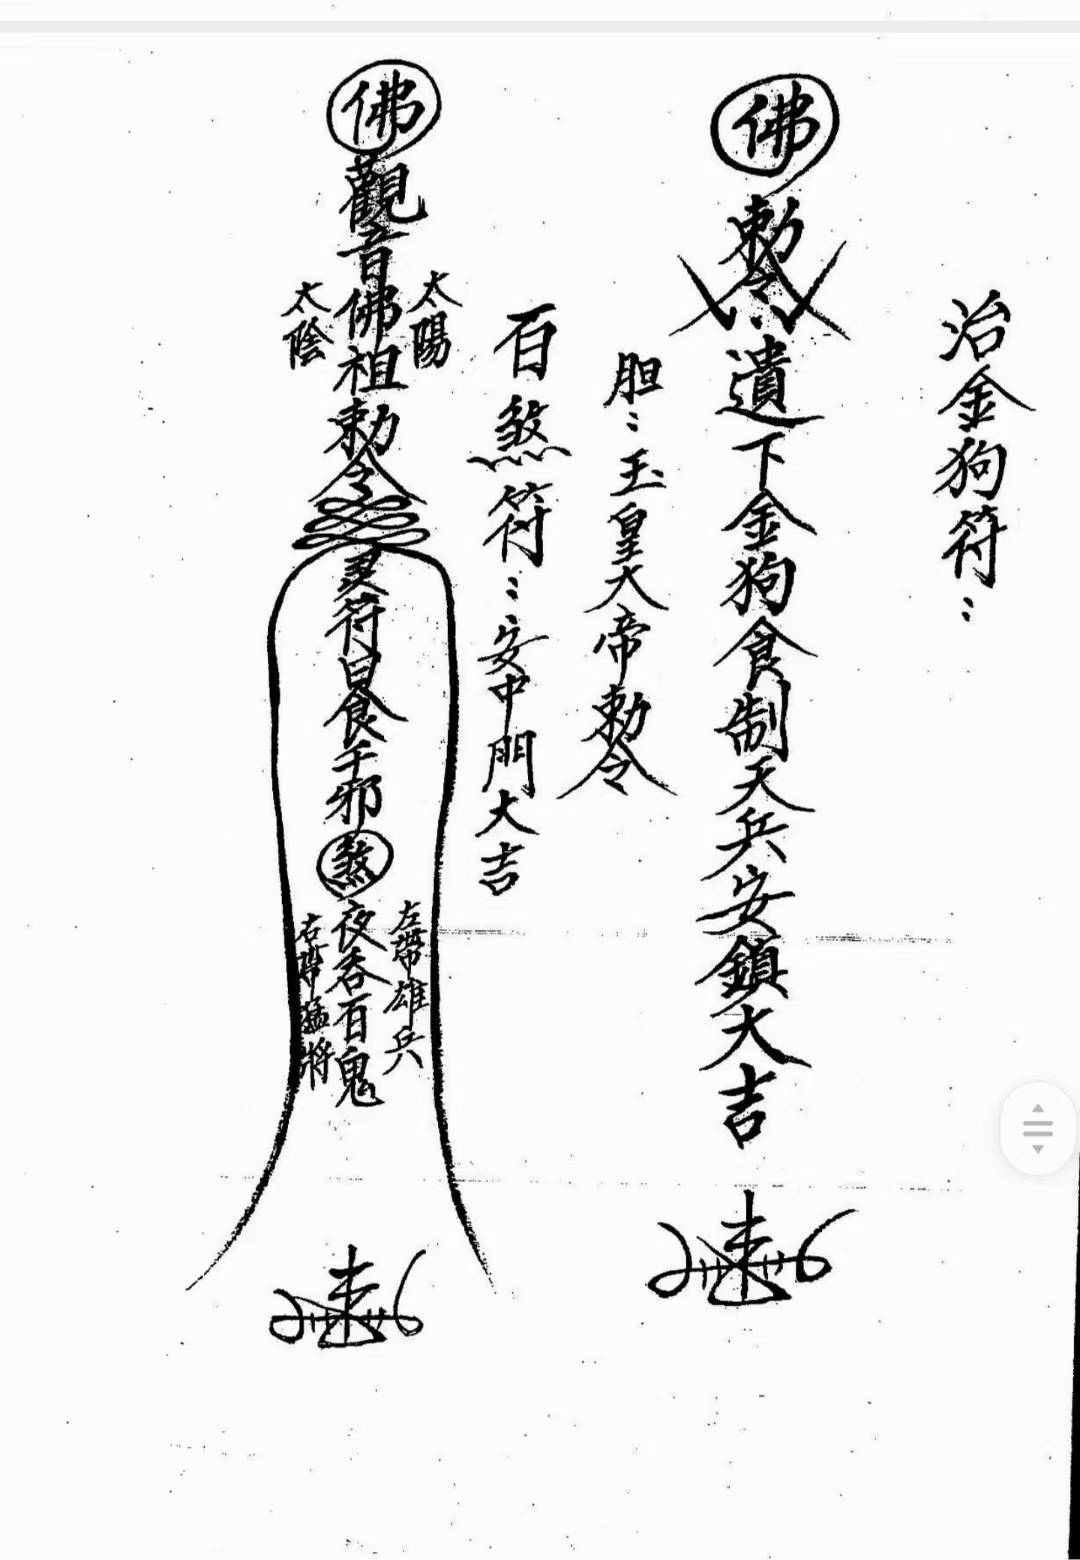 治金狗符：
佛
勅令
遺下金狗食制天兵安鎮大吉
胆：玉皇大帝勅令
百煞符：安中門大吉
佛
觀音佛祖勅令
太陽
太陰
灵符日食千邪
煞
夜吞百鬼
左帶雄兵
右帶猛將